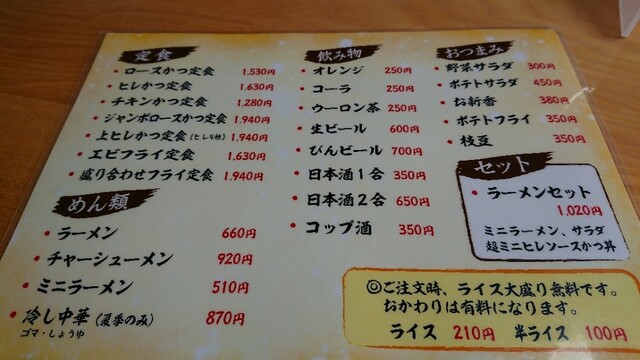 定食
・ロースかつ定食 1.530円
・ヒレかつ定食 1.630円
・チキンかつ定食 1.280円
・ジャンボロースかつ定食 1.940円
・上ヒレかつ定食(ヒレ4枚) 1.940円
・エビフライ定食 1.630円
・盛り合わせフライ定食 1.940円
めん類
・ラーメン 660円
・チャーシューメン 920円
・ミニラーメン 510円
・冷し中華(夏季のみ) 870円
ゴマ・しょうゆ
飲み物
・オレンジ 250円
・コーラ 250円
・ウーロン茶 250円
・生ビール 600円
・びんビール 700円
・日本酒1合 350円
・日本酒2合 650円
・コップ酒 350円
おつまみ
・野菜サラダ 300円
・ポテトサラダ 450円
・お新香 380円
・ポテトフライ 350円
・枝豆 350円
セット
・ラーメンセット
1.020円
ミニラーメン、サラダ
超ミニヒレソースかつ丼
◎ご注文時、ライス大盛り無料です。
おかわりは有料になります。
ライス 210円 半ライス 100円